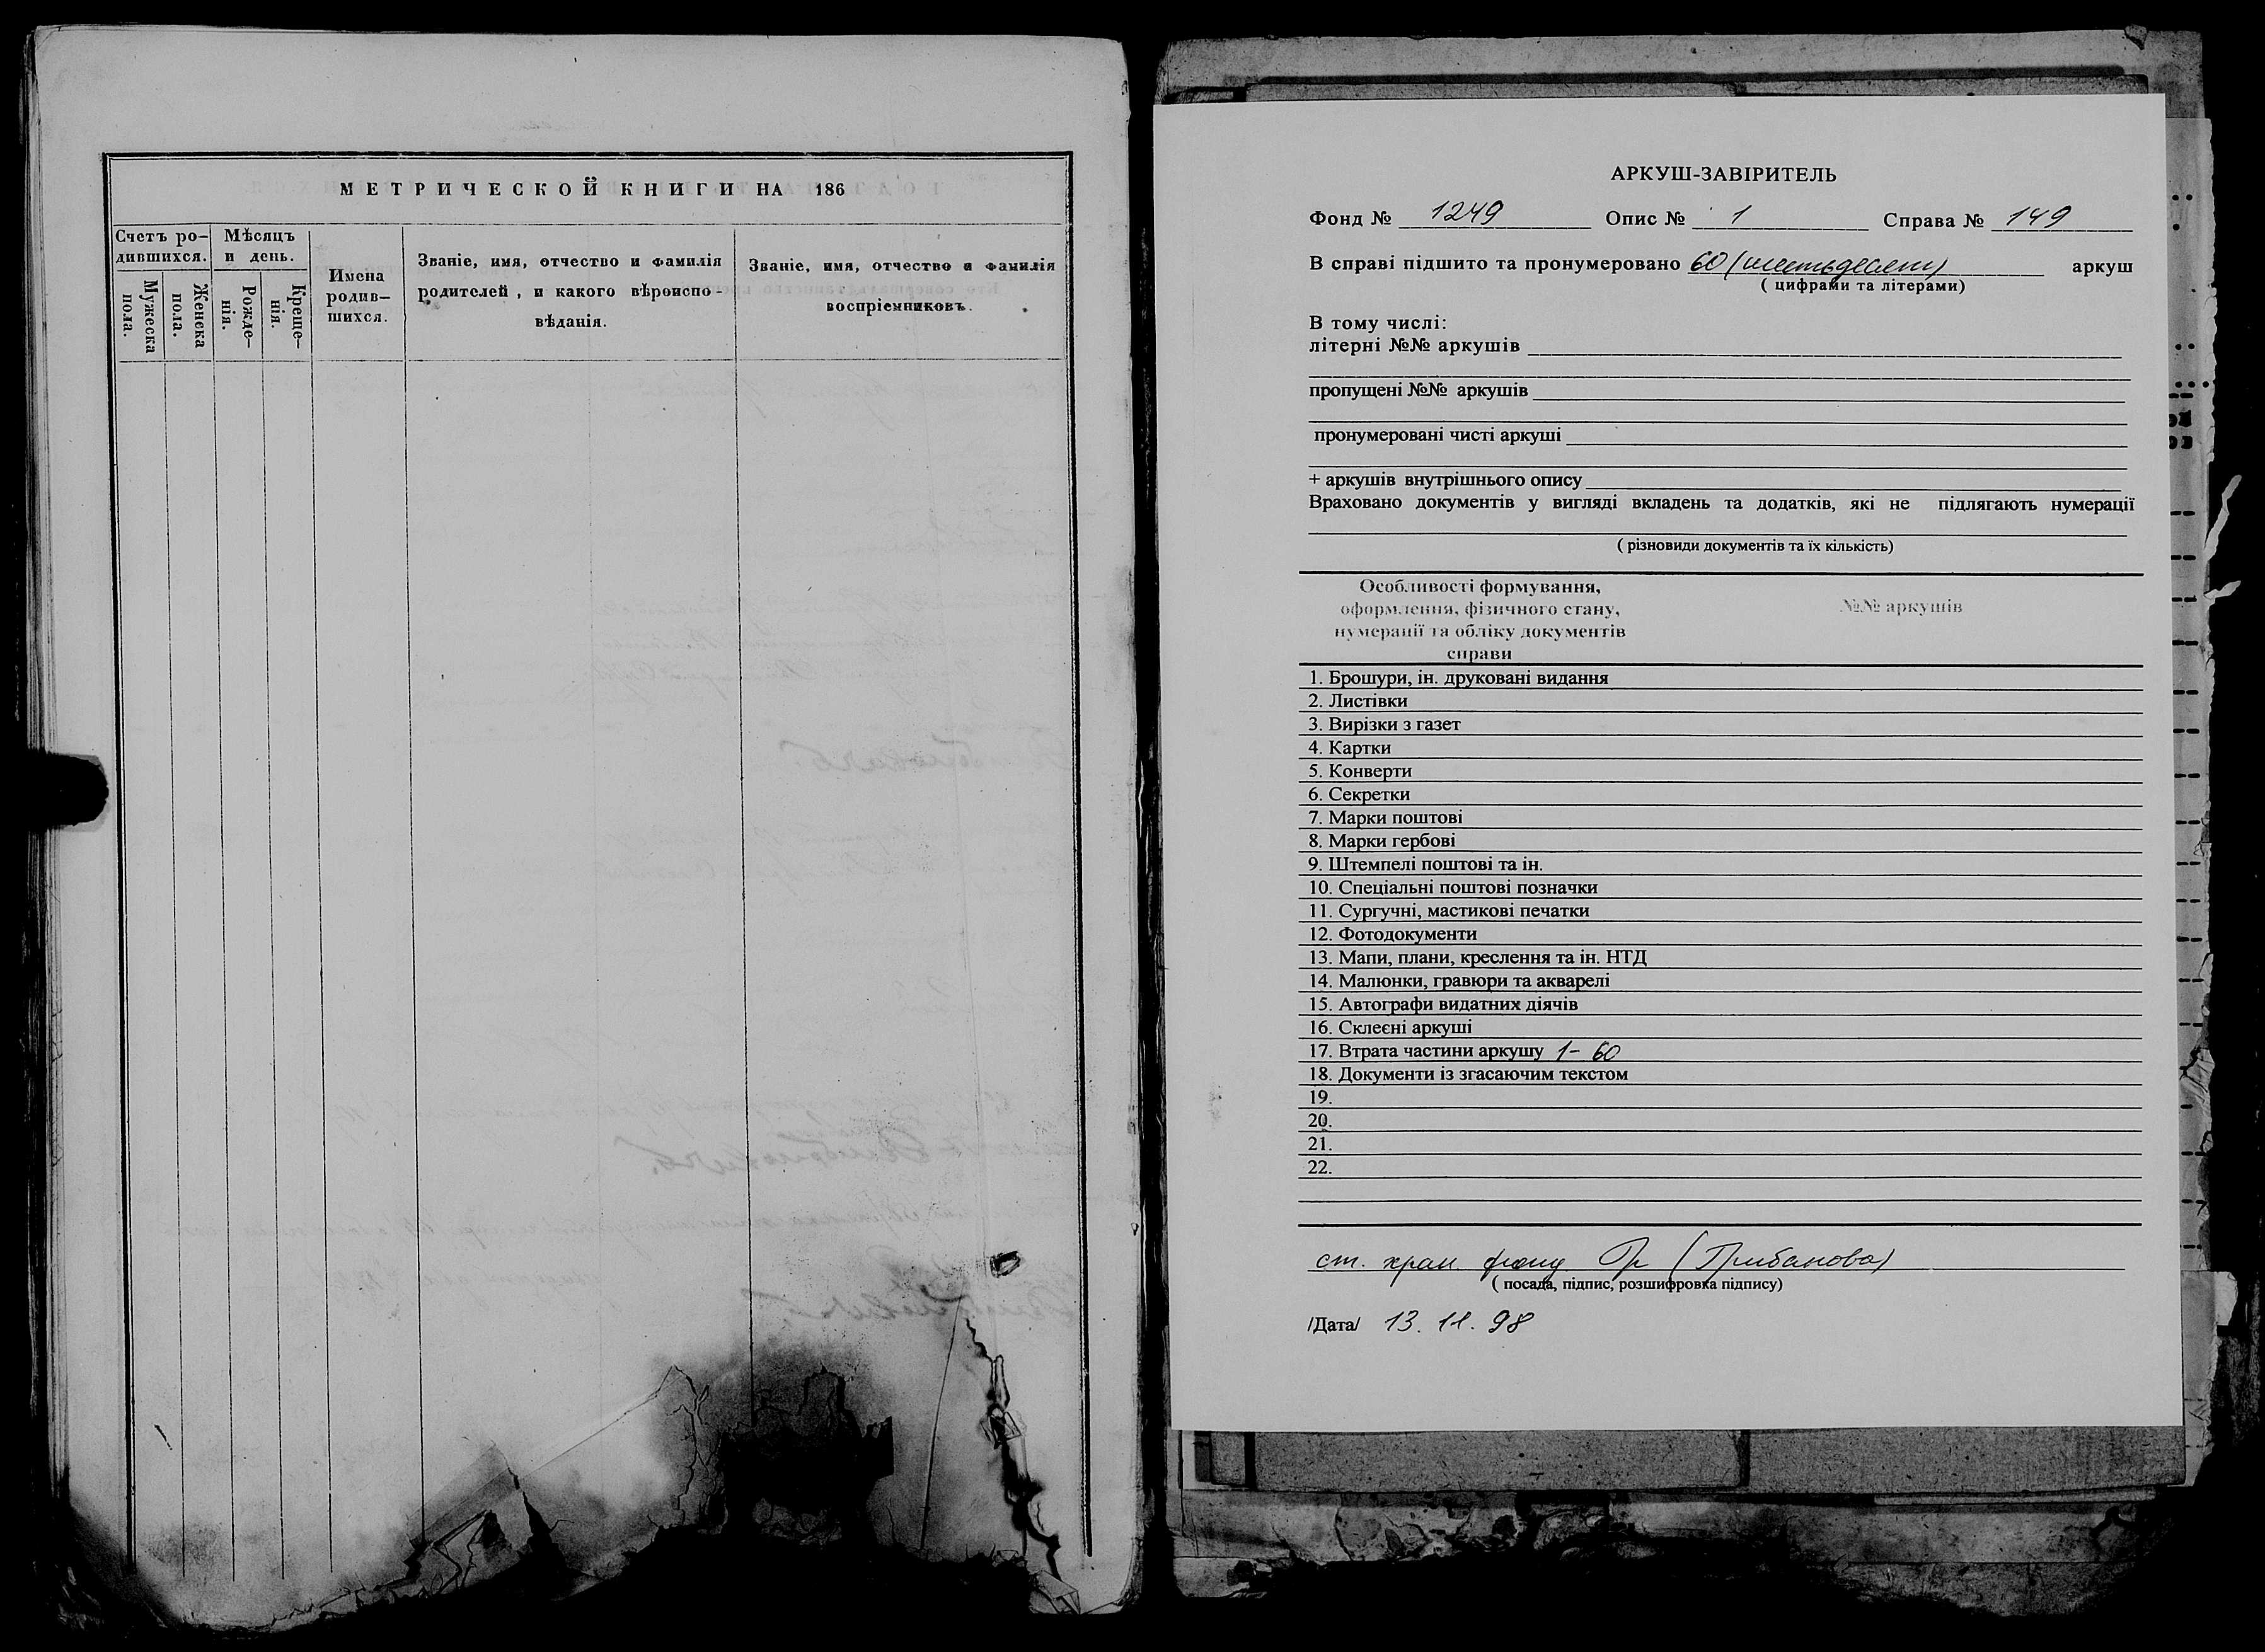 МЕТРИЧЕСКОЙ КНИГИ НА 186
Счетъ ро-
дившихся.
Мѣсяцъ
и день.
Мужеска
пола.
Женска
пола.
Рожде-
нія.
Креще-
нія.
Имена
родив-
шихся.
Званіе, имя, отчество и фамилія
родителей, и какого вѣроиспо-
вѣданія.
Званіе, имя, отчество и фамилія
воспріемниковъ.
АРКУШ-ЗАВІРИТЕЛЬ
Фонд № 1249 Опис № 1 Справа № 149
В справі підшито та пронумеровано 60 (шестьдесят) аркуш
( цифрами та літерами)
В тому числі:
літерні №№ аркушів
пропущені №№ аркушів
пронумеровані чисті аркуші
+ аркушів внутрішнього опису
Враховано документів у вигляді вкладень та додатків, які не підлягають нумерації
( різновиди документів та їх кількість)
Особливості формування,
оформлення, фізичного стану,
нумерації та обліку документів
справи
№№ аркушів
1. Брошури, ін. друковані видання
2. Листівки
3. Вирізки з газет
4. Картки
5. Конверти
6. Секретки
7. Марки поштові
8. Марки гербові
9. Штемпелі поштові та ін.
10. Спеціальні поштові позначки
11. Сургучні, мастикові печатки
12. Фотодокументи
13. Мапи, плани, креслення та ін. НТД
14. Малюнки, гравюри та акварелі
15. Автографи видатних діячів
16. Склеєні аркуші
17. Втрата частини аркушу 1- 60
18. Документи із згасаючим текстом
19.
20.
21.
22.
ст. хран. фонд. Гр (Грибанова)
( посада, підпис, розшифровка підпису)
/Дата/ 13. 11. 98